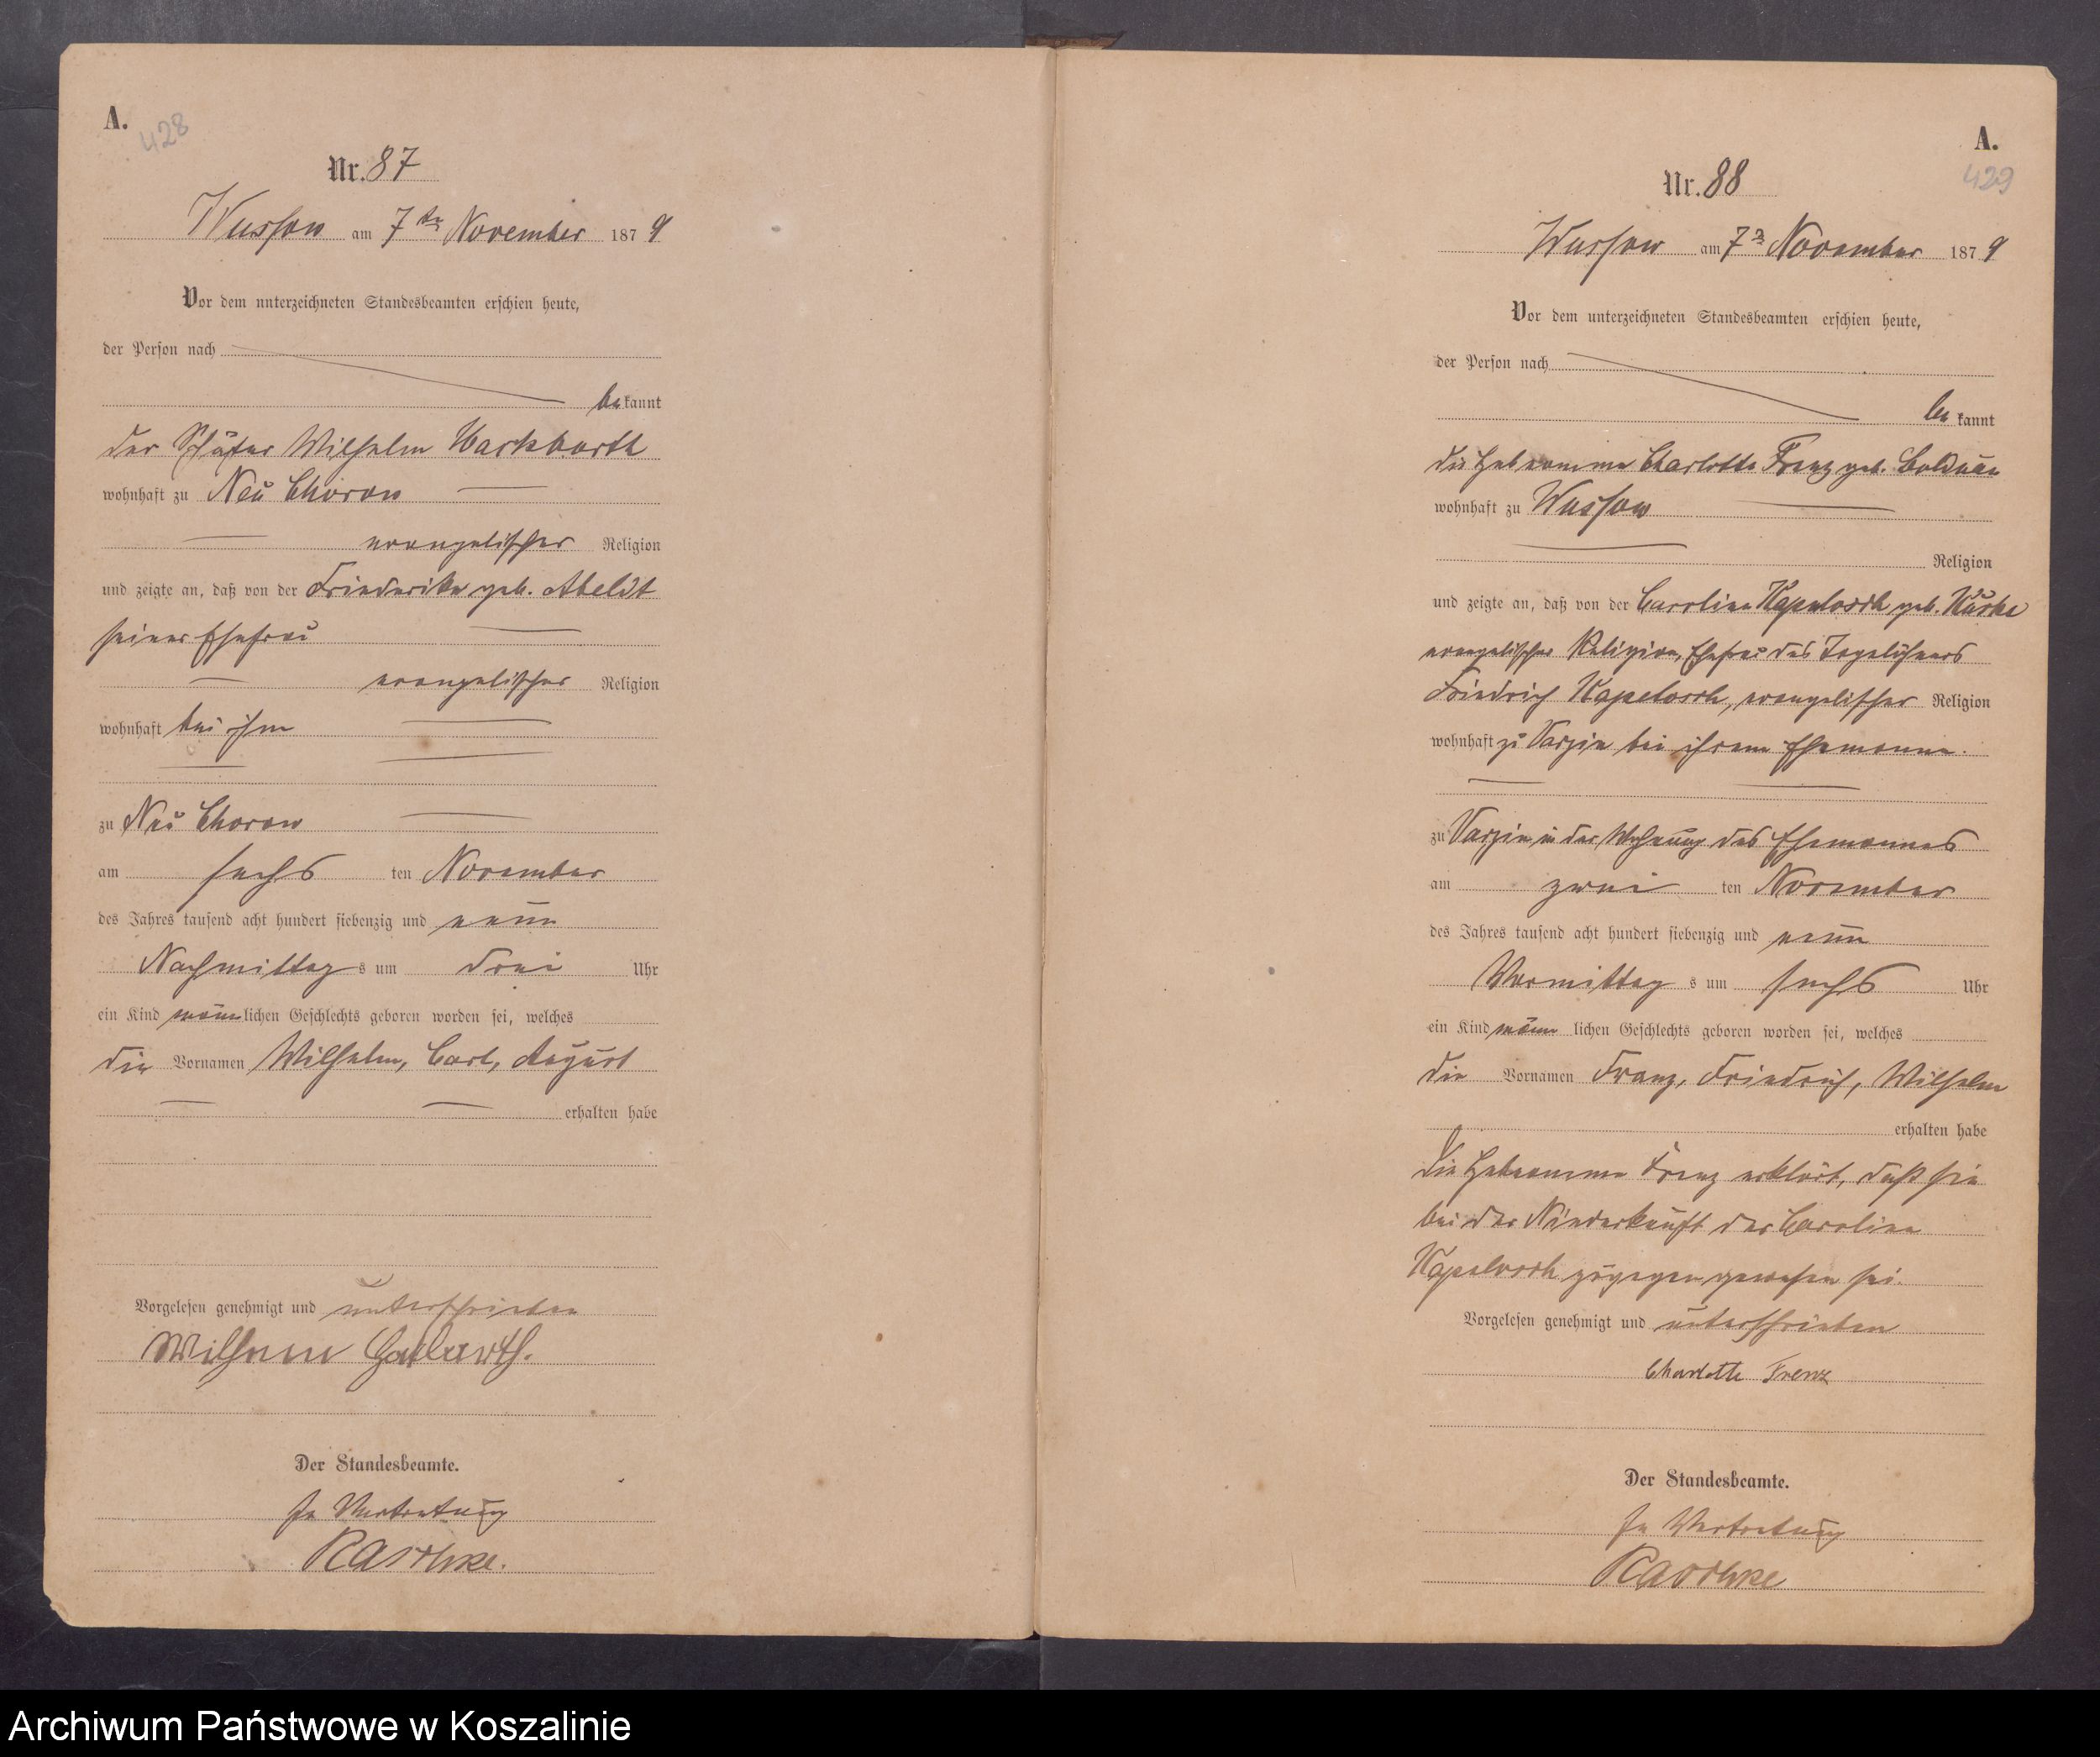 A.
428
Nr. 87
Wussow am 7ten November 1879
Vor dem unterzeichneten Standesbeamten erschien heute,
der Person nach
bekannt
der Schäfer Wilhelm Hackbarth
wohnhaft zu Neu Chorow
evangelischer Religion
und zeigte an, daß von der Friederike geb. Abeldt
seiner Ehefrau
evangelischer Religion
wohnhaft bei ihm
zu Neu Chorow
am sechsten November
des Jahres tausend acht hundert siebenzig und neun
Nachmittags um drei Uhr
ein Kind männlichen Geschlechts geboren worden sei, welches
die Vornamen Wilhelm, Carl, August
erhalten habe
Vorgelesen genehmigt und unterschrieben
Wilhelm
Der Standesbeamte.
In Vertretung
A.
429
Nr. 88
Wussow am 7n November 1879
Vor dem unterzeichneten Standesbeamten erschien heute,
der Person nach
bekannt
die Hebeamme Charlotte Frenz geb. Bolduan
wohnhaft zu Wussow
Religion
und zeigte an, daß von der Caroline geb.
evangelischer Religion, Ehefrau des Tagelöhners
Friedrich evangelischer Religion
wohnhaft zu Varzin bei ihrem Ehemanne.
zu Varzin in der Wohnung des Ehemannes
am zweiten November
des Jahres tausend acht hundert siebenzig und neun
Vormittags um sechs Uhr
ein Kind männlichen Geschlechts geboren worden sei, welches
die Vornamen Franz, Friedrich, Wilhelm
erhalten habe
Die Hebeamme Frenz erklärt, daß sie
bei der Niederkunft der Caroline
zugegen gewesen sei.
Vorgelesen genehmigt und unterschrieben
Charlotte Frenz
Der Standesbeamte.
In Vertretung
Archiwum Państwowe w Koszalinie